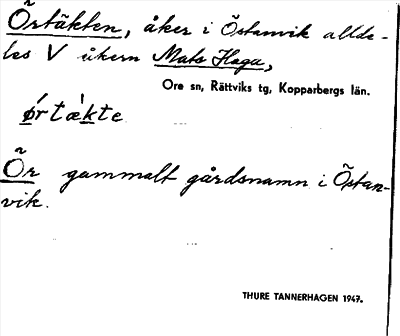 Õrtäkten, åker i Östanvik allde-
les V åkern Mats Haga,
Ore sn, Rättviks tg, Kopparbergs län.
ørtækte
Õr gammalt gårdsnamn i Östan-
vik.
THURE TANNERHAGEN 1947.